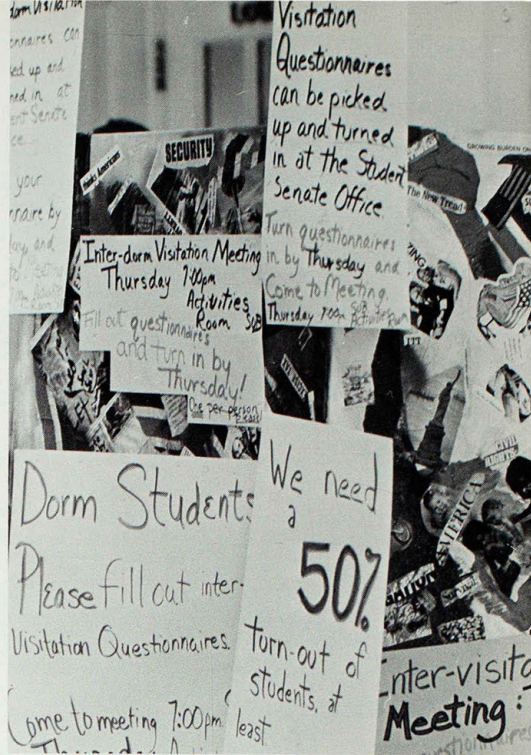 dorm Visitation
onnaires can
ed up and
ned in at
ent Senate
ce.
your
nnaire by
day and
Visitation
Questionnaires
can be picked
up and turned
in at the Student
Senate Office.
Turn questionnaires
in by Thursday and
Come to Meeting.
Thursday 7:00pm SUB
Activities Room
SECURITY
Inter-dorm Visitation Meeting
Thursday 7:00pm
Activities
Room SUB
Fill out questionnaires
and turn in by
Thursday!
One per person,
please
GROWING BURDEN ON
The New Tread
CIVIL
RIGHTS
AMERICA
Dorm Students
Please fill out inter-
Visitation Questionnaires.
Come to meeting 7:00pm
Thursday
We need
a
50%
turn-out of
students, at
least.
Inter-visita
Meeting: